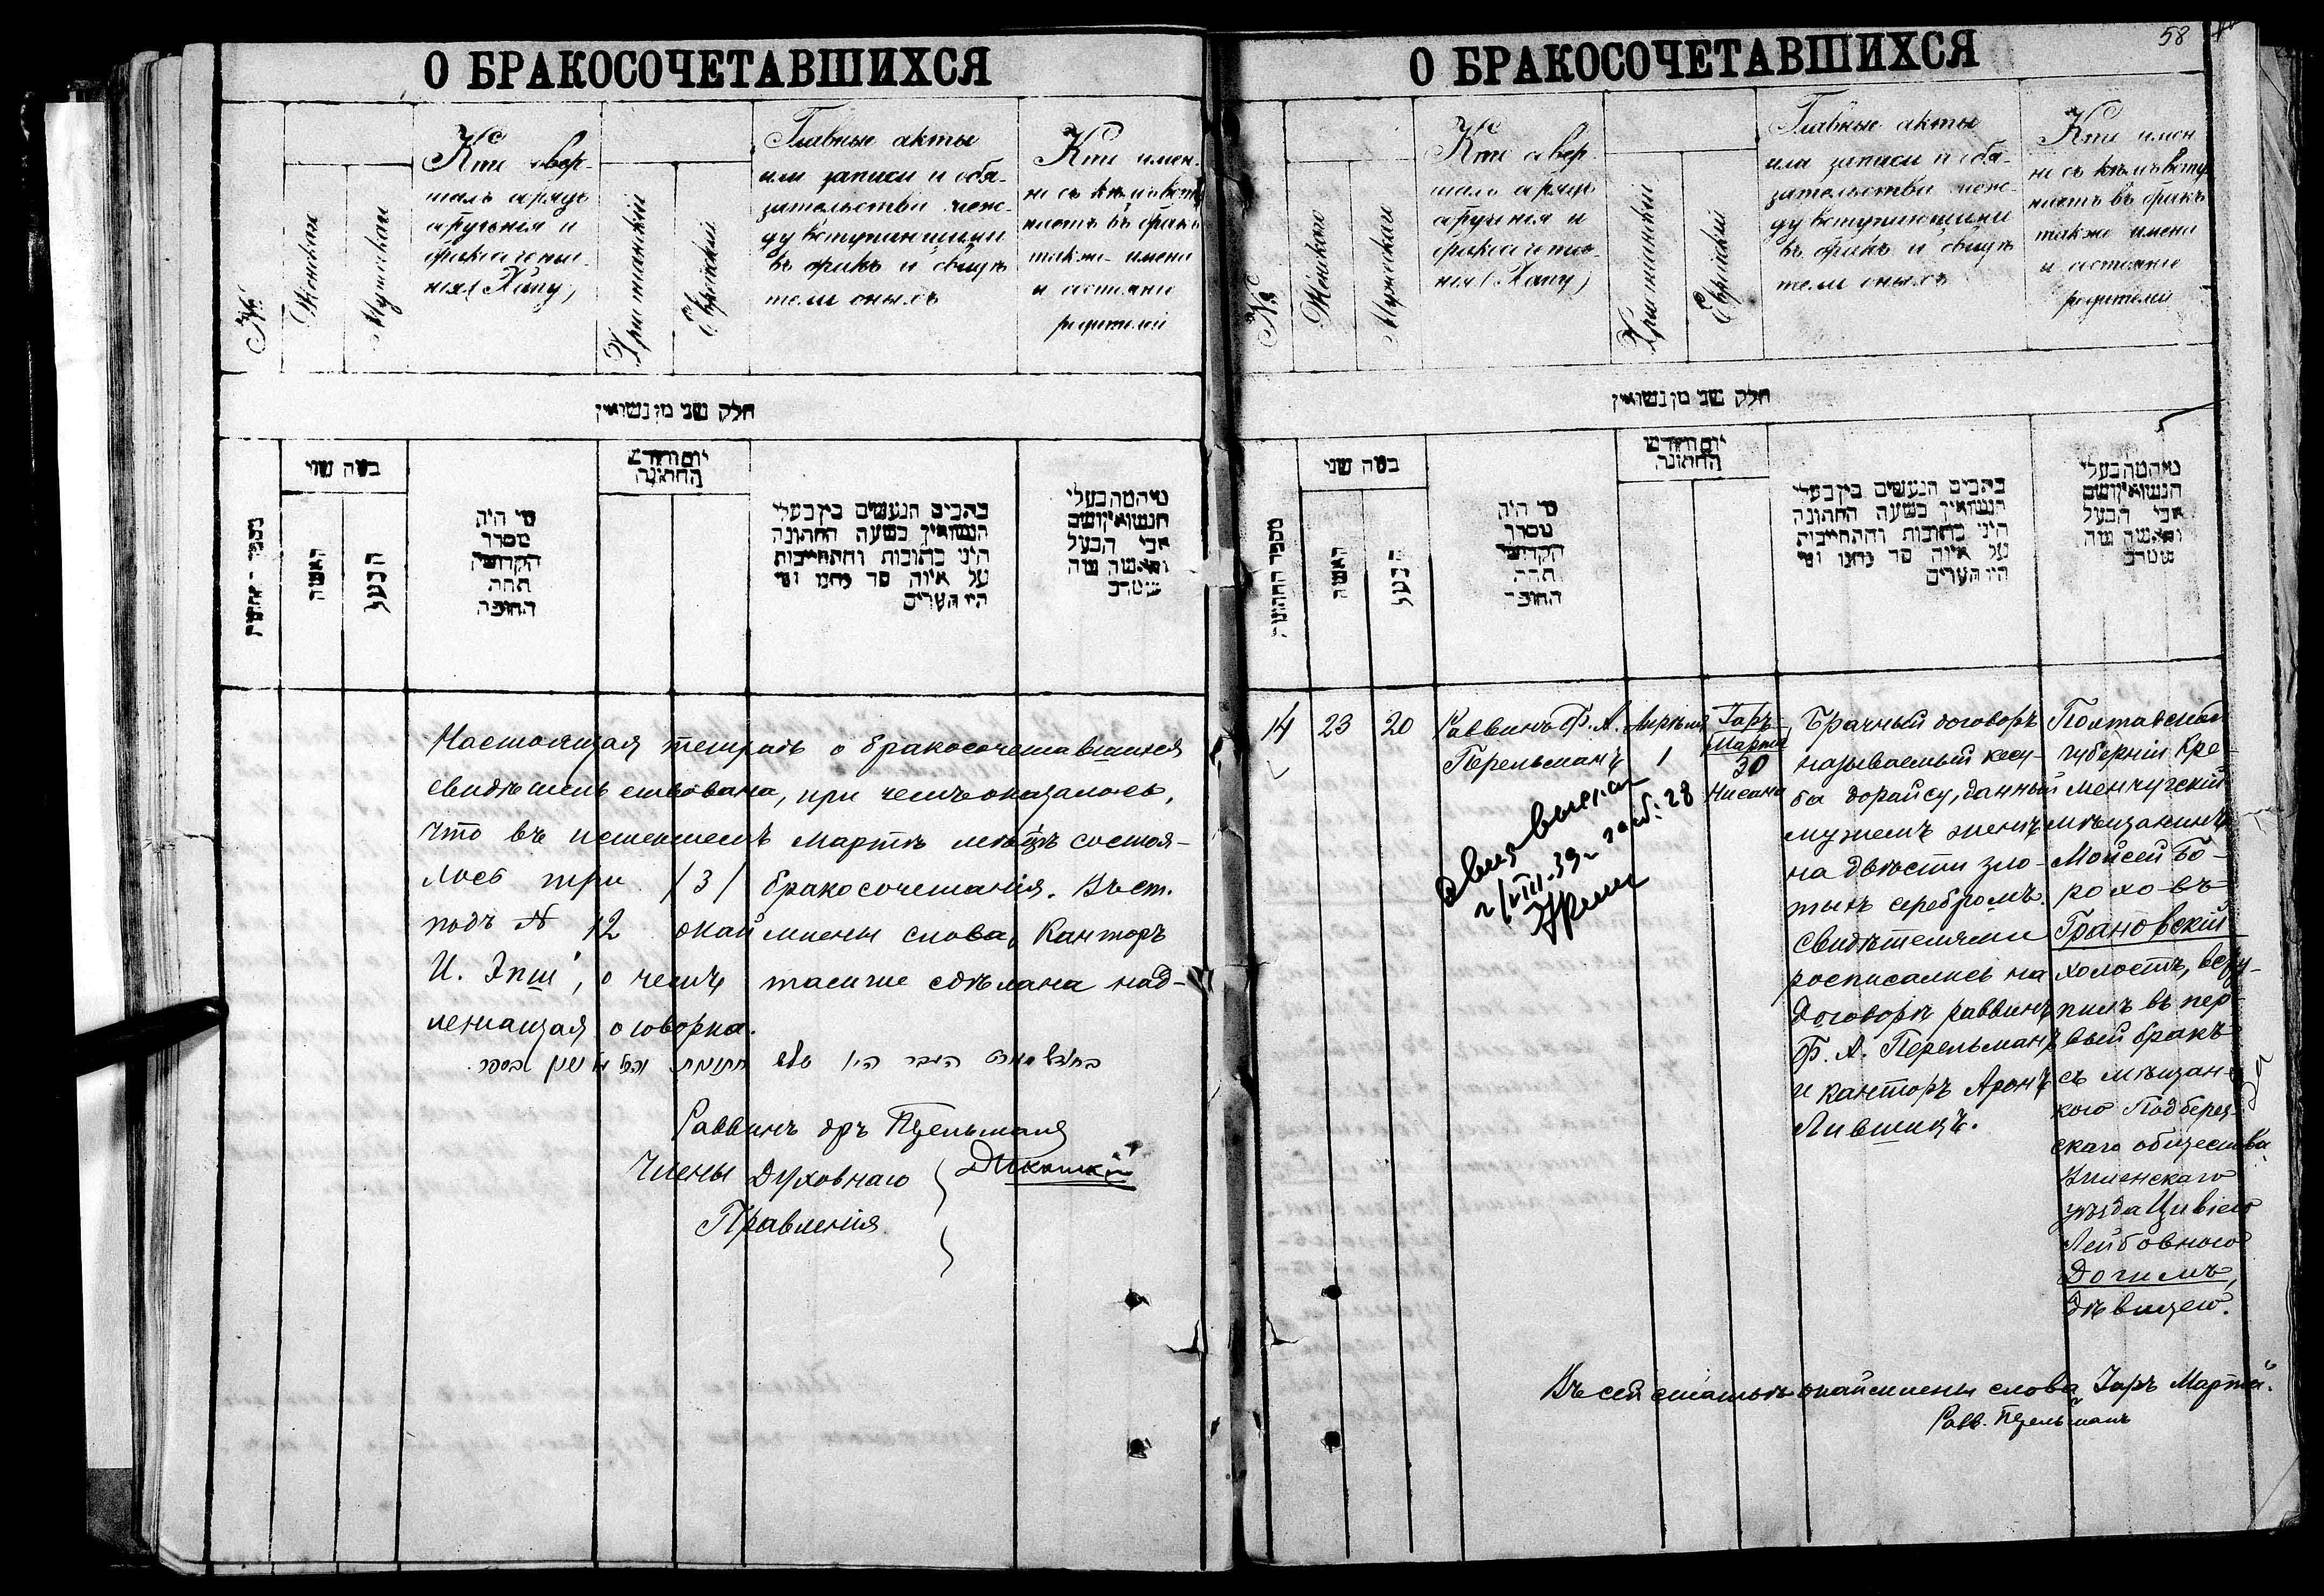 О БРАКОСОЧЕТАВШИХСЯ
№
Женская
Мужеская
Кто совер-
шалъ обрядъ
обрученія и
бракосочета-
нія (Хупу)
Христіанскій
Еврейскій
Главные акты
или записи и обя-
зательства меж-
ду вступающими
въ бракъ и свидѣ
тели оныхъ
Кто имен-
но съ кѣмъ всту
паетъ въ бракъ
также имена
и состояніе
родителей
חלק שני מן נשואין
מספר
האשה
הבעל
מי היה
מסדר
הקדושין
תחת
החופה
יום וחודש
החתונה
כתבים הנעשים בין בעלי
הנשואין בשעה החתונה
היני כתובות והתחייבות
על איזה סך נתנו ומי
היו העדים
מי המה בעלי
הנשואין ושם
אבי הבעל
והאשה
Настоящая тетрадь о бракосочетавшихся
свидѣтельствована, при чемъ оказалось,
что въ истекшемъ Мартѣ мѣсяцѣ состоя-
лось три /3/ бракосочетанія. Въ ст.
подъ № 12 окаймлены слова Канторъ
И. Эпш', о чемъ также сдѣлана над-
лежащая оговорка.
Раввинъ дръ Перельманъ
Члены Духовнаго
Правленія
58
О БРАКОСОЧЕТАВШИХСЯ
№
Женская
Мужеская
Кто совер-
шалъ обрядъ
обрученія и
бракосочета-
нія (Хупу)
Христіанскій
Еврейскій
Главные акты
или записи и обя-
зательства меж-
ду вступающими
въ бракъ и свидѣ
тели оныхъ
Кто имен
но съ кѣмъ всту
паетъ въ бракъ
также имена
и состояніе
родителей
חלק שני מן נשואין
מספר החתונה
בשה שני
האשה
הבעל
מי היה
מסדר
הקדושין
תחת
החופה
יום וחודש
החתונה
כתבים הנעשים בין בעלי
הנשואין בשעה החתונה
היני כתובות והתחייבות
על איזה סך נתנו ומי
היו העדים
מי המה בעלי
הנשואין ושם
אבי הבעל
והאשה
14
23
20
Раввинъ Ф. А.
Перельманъ
Апрѣля
1
Гаръ
Марта
30
Нисана
Брачный договоръ
называемый кесу-
ба дорайсу, данный
мужемъ женѣ
на двѣсти зло-
тыхъ серебромъ.
Свидѣтелями
росписались на
договорѣ раввинъ
Ф. А. Перельманъ
и канторъ Аронъ
Лившицъ.
Полтавской
губерніи Кре-
менчугскій
мѣщанинъ
Мойсей Бо-
роховъ
Грановскій
холостъ, всту-
пилъ въ пер-
вый бракъ
съ мѣщан-
кою Подберез-
скаго общества
Виленскаго
уѣзда Цивіею
Лейбовною
Догимъ,
дѣвицею.
Въ сей статьѣ окаймлены слова „Гаръ Марта".
Равв. Перельманъ